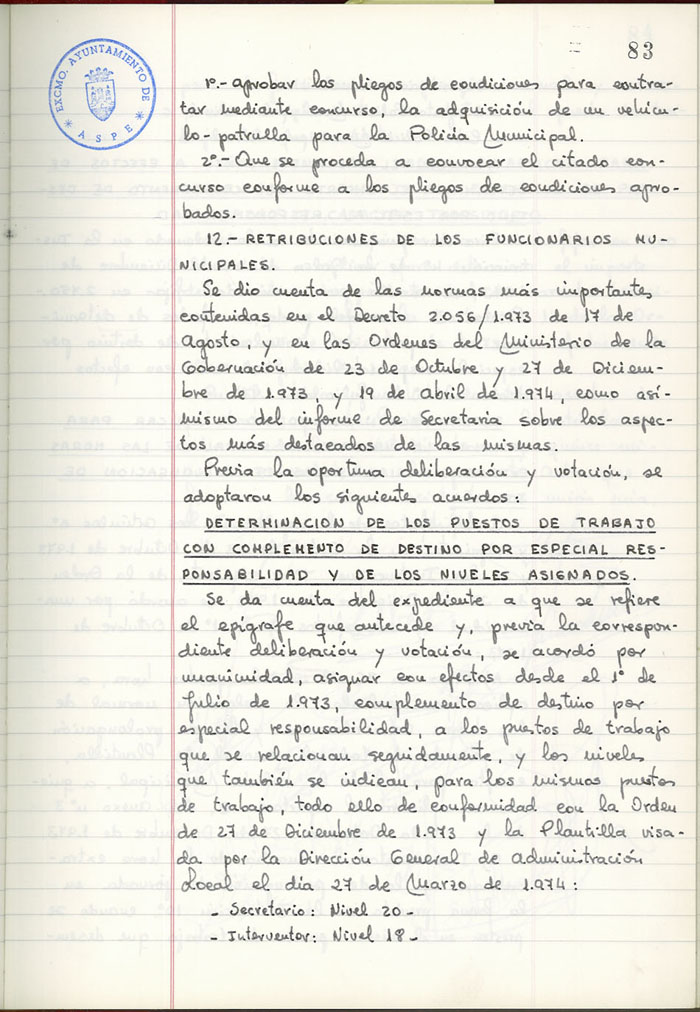 83
EXCMO. AYUNTAMIENTO DE
* ASPE *
1º.- aprobar los pliegos de condiciones para contra-
tar mediante concurso, la adquisición de un vehícu-
lo-patrulla para la Policía Municipal.
2º.- Que se proceda a convocar el citado con-
curso conforme a los pliegos de condiciones apro-
bados.
12.- RETRIBUCIONES DE LOS FUNCIONARIOS MU-
NICIPALES.
Se dio cuenta de las normas más importantes
contenidas en el Decreto 2.056/1.973 de 17 de
Agosto, y en las Ordenes del Ministerio de la
Gobernación de 23 de Octubre y 27 de Diciem-
bre de 1.973, y 19 de abril de 1.974, como así-
mismo del informe de Secretaria sobre los aspec-
tos más destacados de las mismas.
Previa la oportuna deliberación y votación, se
adoptaron los siguientes acuerdos:
DETERMINACION DE LOS PUESTOS DE TRABAJO
CON COMPLEMENTO DE DESTINO POR ESPECIAL RES-
PONSABILIDAD Y DE LOS NIVELES ASIGNADOS.
Se da cuenta del expediente a que se refiere
el epígrafe que antecede y, previa la correspon-
diente deliberación y votación, se acordó por
unanimidad, asignar con efectos desde el 1º de
Julio de 1.973, complemento de destino por
especial responsabilidad, a los puestos de trabajo
que se relacionan seguidamente, y los niveles
que también se indican, para los mismos puestos
de trabajo, todo ello de conformidad con la Orden
de 27 de Diciembre de 1.973 y la Plantilla visa-
da por la Dirección General de administración
Local el día 27 de Marzo de 1.974:
- Secretario: Nivel 20 -
- Interventor: Nivel 18 -